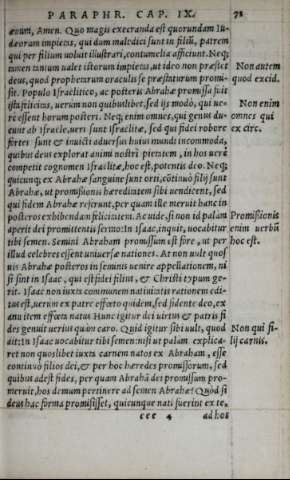 PARAPHR. CAP. IX. 78
æuum, Amen. Quo magis execranda est quorundam Iu-
dæorum impietas, qui dum maledicũt sunt in filiũ, patrem
qui per filium voluit illustrari, contumelia afficiunt. Neq;
tamen tantum valet istorum impietas, ut ideo non præstet
deus, quod prophetarum oraculis se præstiturum promi-
sit. Populo Israëlitico, ac posteris Abrahæ promissa fuit
ista felicitas, uerum non quibuslibet, sed ijs modò, qui ue-
rè essent horum posteri. Neq; enim omnes, qui genus du-
cunt ab Israele, ueri sunt Israelitæ, sed qui fidei robore
fortes sunt & inuicti aduersus huius mundi incommoda,
quibus deus explorat animi nostri pietatem, in hos uerè
competit cognomen Israëlitæ, hoc est, potentis deo. Neq;
quicunq; ex Abrahæ sanguine sunt orti, cõtinuò filij sunt
Abrahæ, ut promissionis hæreditatem sibi uendicent, sed
qui fidem Abrahæ referunt, per quam ille meruit hanc in
posteros exhibendam felicitatem. Ac uide, si non id palam
aperit dei promittentis sermo: In Isaac, inquit, uocabitur
tibi semen. Semini Abraham promissum est fore, ut per
illud celebres essent uniuersæ nationes. At non uult quos
uis Abrahæ posteros in seminis uenire appellationem, ni
si sint in Isaac, qui est fidei filius, & Christi typum ge-
rit. Isaac non iuxta communem natiuitatis rationem edi-
tus est, uerùm ex patre effœto quidem, sed fidente deo, ex
anu item effœta natus Hunc igitur dei uirtus & patris fi
des genuit uerius quàm caro. Quid igitur sibi uult, quod
ait: In Isaac uocabitur tibi semen: nisi ut palam explica-
ret non quoslibet iuxta carnem natos ex Abraham, esse
continuò filios dei, & per hoc hæredes promissorum, sed
quibus adest fides, per quam Abrahã dei promissum pro-
meruit, hos demum pertinere ad semen Abrahæ? Quòd si
deus hac forma promisisset, quicunque nati fuerint ex te,
ccc 4 ad hos
Non autem
quod excid.
Non enim
omnes qui
ex circ.
Promissionis
enim uerbũ
hoc est.
Non qui fi-
lij carnis.